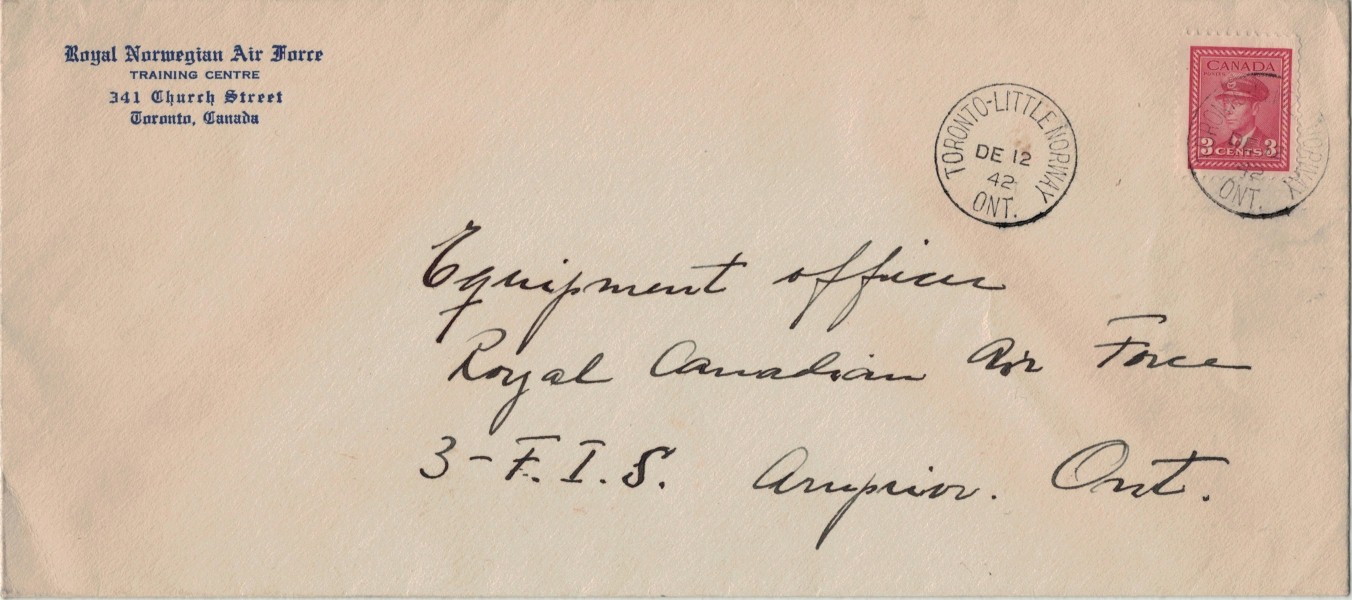 Royal Norwegian Air Force
TRAINING CENTRE
341 Church Street
Toronto, Canada
TORONTO-LITTLE NORWAY
DE 12
42
ONT.
CANADA
3 CENTS 3
DE
42
ONT.
NORWAY
Equipment officer
Royal Canadian Air Force
3-F.I.S. Arnprior. Ont.